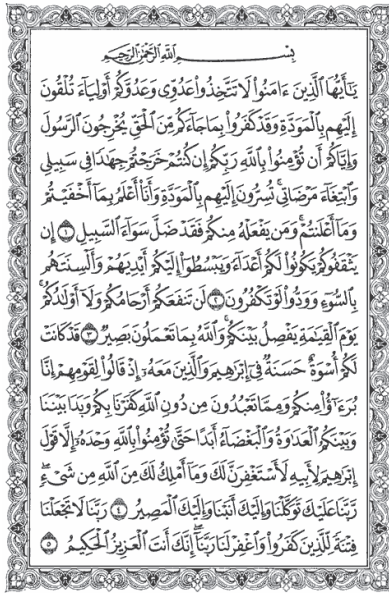 بِسْمِ ٱللَّهِ ٱلرَّحْمَٰنِ ٱلرَّحِيمِ
يَٰٓأَيُّهَا ٱلَّذِينَ ءَامَنُوا۟ لَا تَتَّخِذُوا۟ عَدُوِّى وَعَدُوَّكُمْ أَوْلِيَآءَ تُلْقُونَ
إِلَيْهِم بِٱلْمَوَدَّةِ وَقَدْ كَفَرُوا۟ بِمَا جَآءَكُم مِّنَ ٱلْحَقِّ يُخْرِجُونَ ٱلرَّسُولَ
وَإِيَّاكُمْ أَن تُؤْمِنُوا۟ بِٱللَّهِ رَبِّكُمْ إِن كُنتُمْ خَرَجْتُمْ جِهَٰدًا فِى سَبِيلِى
وَٱبْتِغَآءَ مَرْضَاتِى تُسِرُّونَ إِلَيْهِم بِٱلْمَوَدَّةِ وَأَنَا۠ أَعْلَمُ بِمَآ أَخْفَيْتُمْ
وَمَآ أَعْلَنتُمْ وَمَن يَفْعَلْهُ مِنكُمْ فَقَدْ ضَلَّ سَوَآءَ ٱلسَّبِيلِ ١ إِن
يَثْقَفُوكُمْ يَكُونُوا۟ لَكُمْ أَعْدَآءً وَيَبْسُطُوٓا۟ إِلَيْكُمْ أَيْدِيَهُمْ وَأَلْسِنَتَهُم
بِٱلسُّوٓءِ وَوَدُّوا۟ لَوْ تَكْفُرُونَ ٢ لَن تَنفَعَكُمْ أَرْحَامُكُمْ وَلَآ أَوْلَٰدُكُمْ
يَوْمَ ٱلْقِيَٰمَةِ يَفْصِلُ بَيْنَكُمْ وَٱللَّهُ بِمَا تَعْمَلُونَ بَصِيرٌ ٣ قَدْ كَانَتْ
لَكُمْ أُسْوَةٌ حَسَنَةٌ فِىٓ إِبْرَٰهِيمَ وَٱلَّذِينَ مَعَهُۥٓ إِذْ قَالُوا۟ لِقَوْمِهِمْ إِنَّا
بُرَءَٰٓؤُا۟ مِنكُمْ وَمِمَّا تَعْبُدُونَ مِن دُونِ ٱللَّهِ كَفَرْنَا بِكُمْ وَبَدَا بَيْنَنَا
وَبَيْنَكُمُ ٱلْعَدَٰوَةُ وَٱلْبَغْضَآءُ أَبَدًا حَتَّىٰ تُؤْمِنُوا۟ بِٱللَّهِ وَحْدَهُۥٓ إِلَّا قَوْلَ
إِبْرَٰهِيمَ لِأَبِيهِ لَأَسْتَغْفِرَنَّ لَكَ وَمَآ أَمْلِكُ لَكَ مِنَ ٱللَّهِ مِن شَىْءٍ ۖ
رَّبَّنَا عَلَيْكَ تَوَكَّلْنَا وَإِلَيْكَ أَنَبْنَا وَإِلَيْكَ ٱلْمَصِيرُ ٤ رَبَّنَا لَا تَجْعَلْنَا
فِتْنَةً لِّلَّذِينَ كَفَرُوا۟ وَٱغْفِرْ لَنَا رَبَّنَآ ۖ إِنَّكَ أَنتَ ٱلْعَزِيزُ ٱلْحَكِيمُ ٥